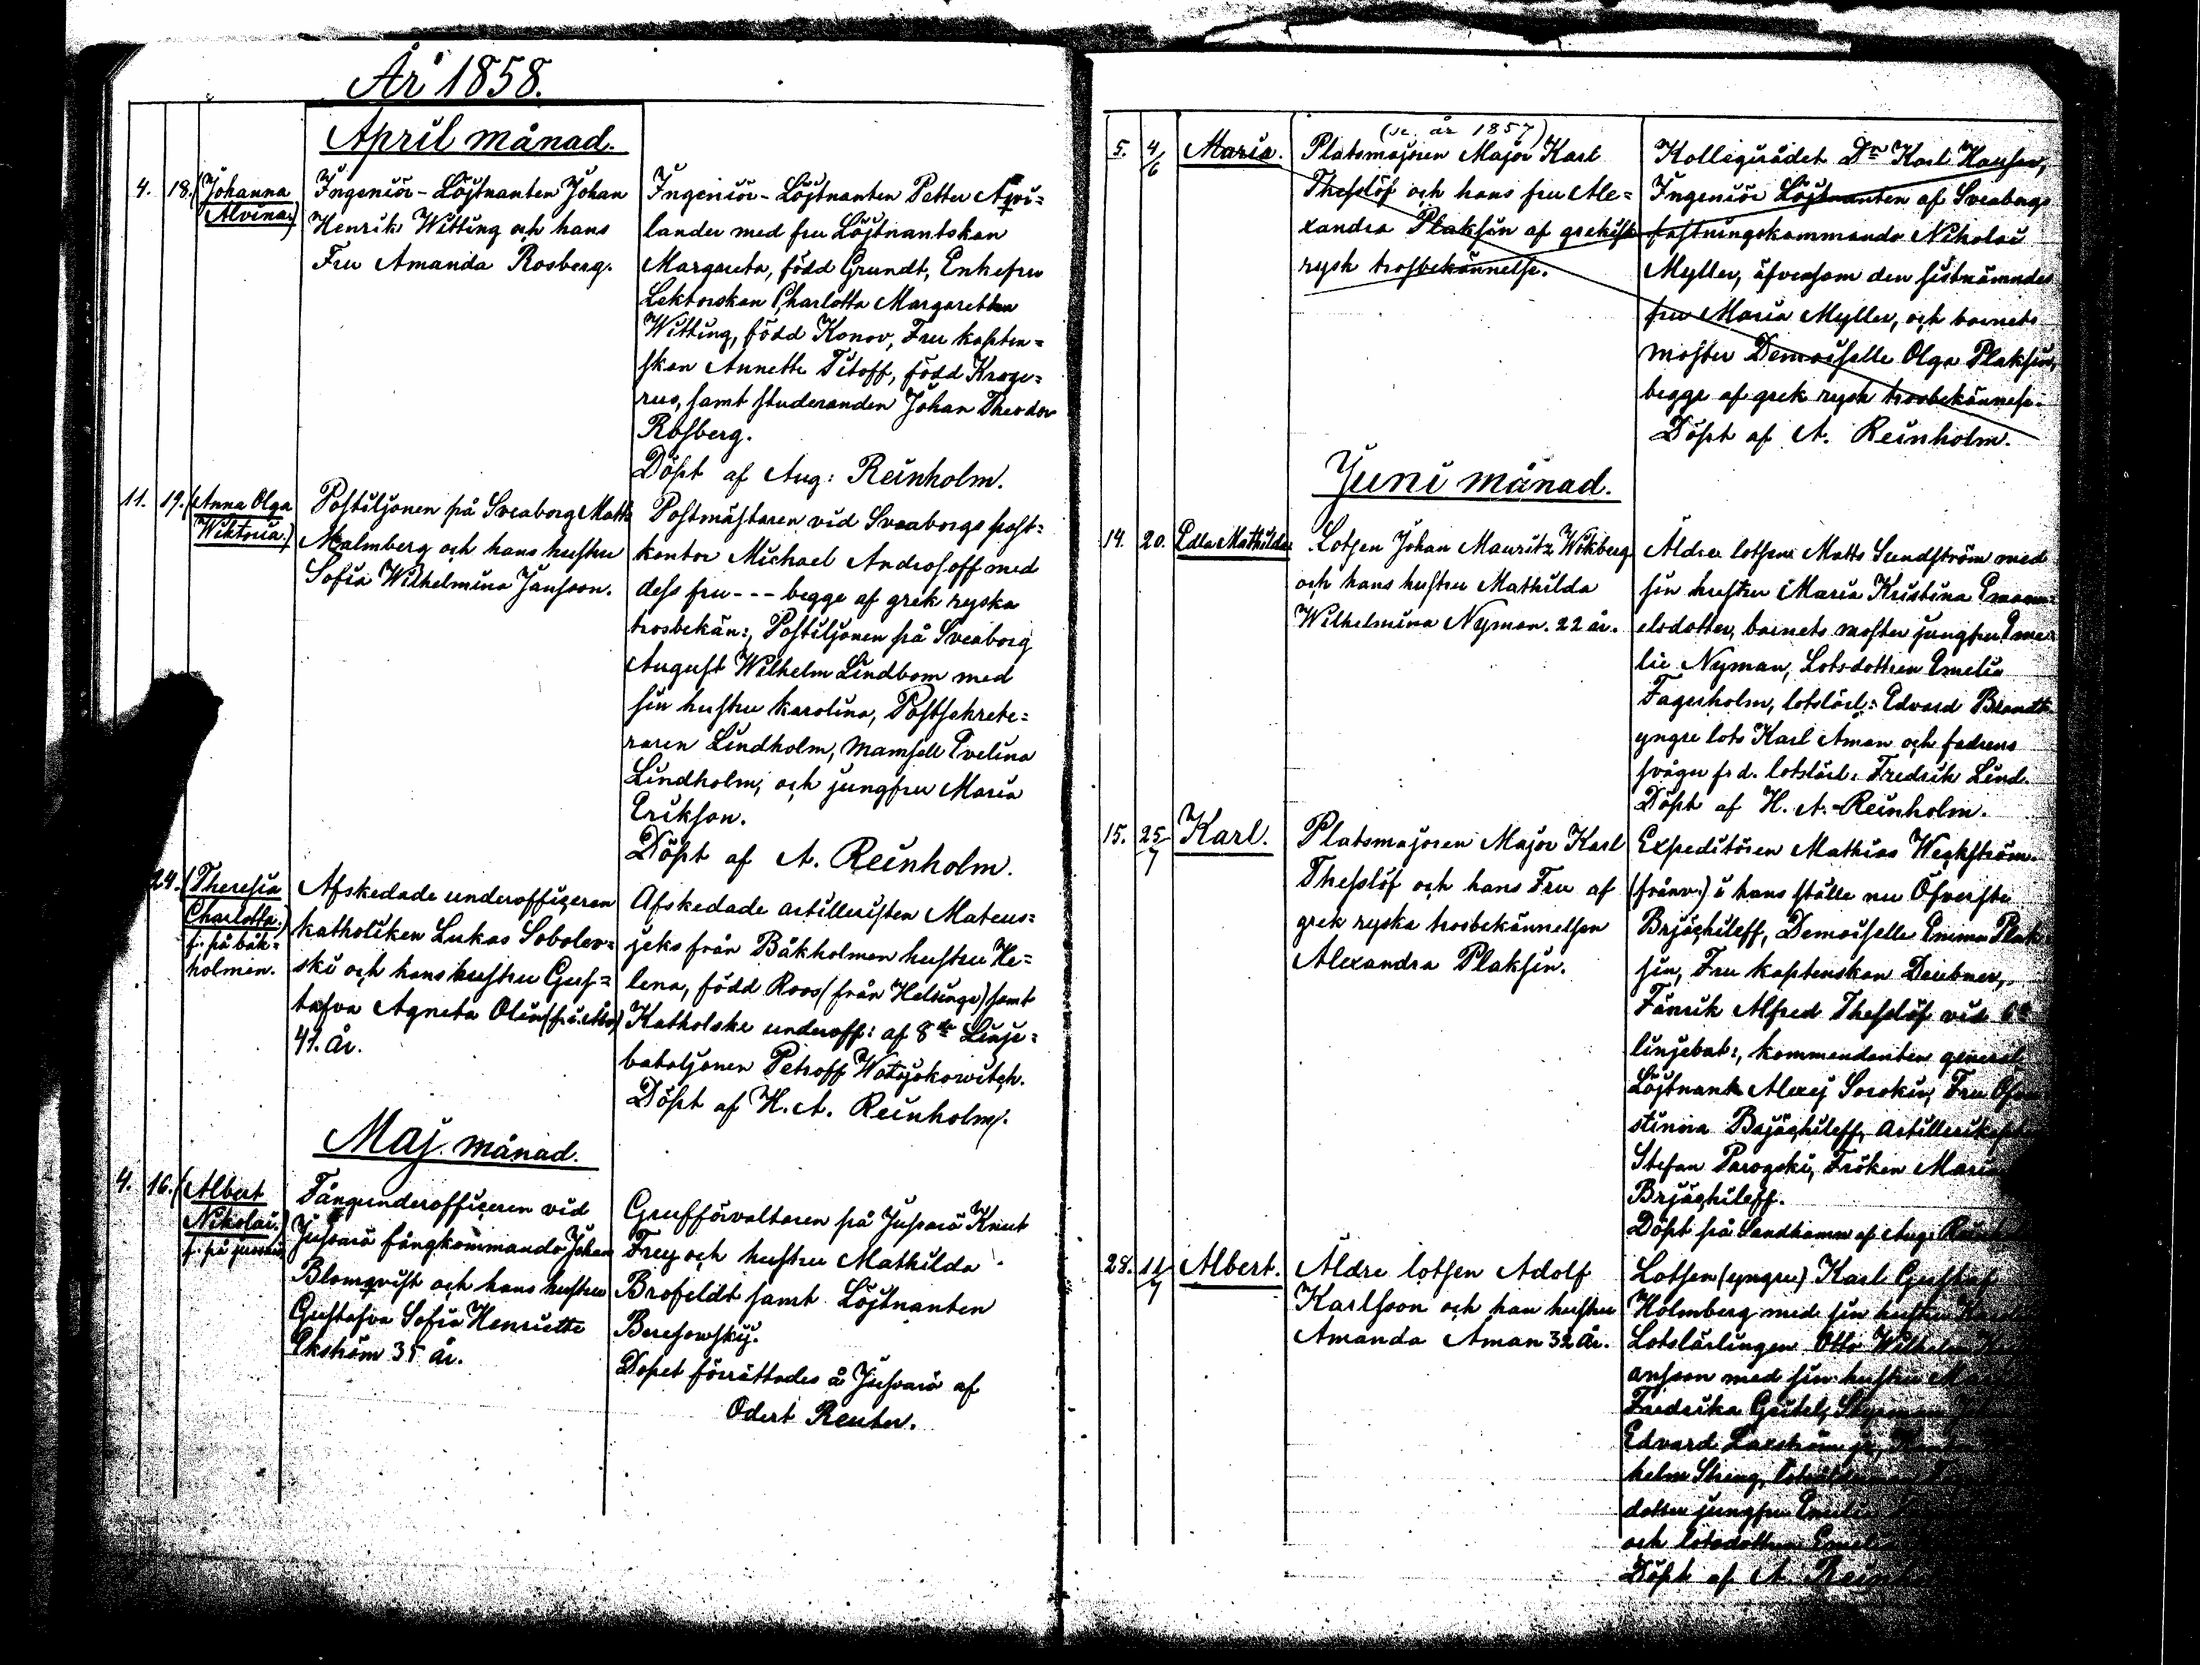 År 1858.
April månad.
4. 18. (Johanna
Alvina.)
Ingeniör-Löjtnanten Johan
Henrik Witting och hans
Fru Amanda Rosberg.
Ingeniör-Löjtnanten Petter
lander med fru Löjtnantskan
Margareta, född Grundt, Enkefru
Lektorskan Charlotta Margaretha
Witting, född Konov, Fru kapten=
skan Annette Titoff, född Kroge=
rus, samt studeranden Johan Theodor
Rosberg.
Döpt af Aug: Reinholm.
11. 19. (Anna Olga
Wiktoria.)
Postiljonen på Sveaborg Matts
Malmberg och hans hustru
Sofia Wilhelmina Jansson.
Postmästaren vid Sveaborgs post=
kontor Michael Androsoff med
dess fru --- begge af grek ryska
trosbekän:, Postiljonen på Sveaborg
August Wilhelm Lindbom med
sin hustru Karolina, Postsekrete=
raren Lindholm, mamsell Evelina
Lindholm, och jungfru Maria
Erikson.
Döpt af A. Reinholm.
24. (Theresia
Charlotta.)
f. på båk=
holmen.
Afskedade underofficeren
katholiken Lukas Sobolev=
ski och hans hustru Gus=
tafva Agneta Olin
41. år.
Afskedade artilleristen Mateus=
jeks från Båkholmen hustru He=
lena, född Roos (från Helsinge) samt
Katholske underoff: af 8de Linje=
bataljonen Petroff
Döpt af H. A. Reinholm.
Maj månad.
4. 16. (Albert
Nikolai.)
f. på Jussarö
Fångunderofficeren vid
Jussarö fångkommando Johan
Blomqvist och hans hustru
Gustafva Sofia Henriette
Ekström 35 år.
Grufförvaltaren på Jussarö Knut
Frey och hustru Mathilda
Brofeldt samt Löjtnanten
Beresowskij.
Dopet förrättades å Jussarö af
Odert Reuter.
5. 4/6 Maria.
(se år 1857)
Platsmajoren Major Karl
Thesslöf och hans fru Ale=
xandra Plaksin af grekisk
rysk trosbekännelse.
Kollegirådet Dr Karl
Ingeniör Löjtnanten af Sveaborgs
fästningskommando Nikolai
Myller, äfvensom den sistnämndes
fru Maria Myller, och barnets
moster Demoiselle Olga Plaksin,
begge af grek rysk trosbekännelse.
Döpt af A. Reinholm.
Juni månad.
14. 20. Edla Mathilda
Lotsen Johan Mauritz Wikberg
och hans hustru Mathilda
Wilhelmina Nyman. 22 år.
Äldre lotsen Matts Sundström med
sin hustru Maria Kristina
elsdotter, barnets moster jungfru Eme
lie Nyman, Lotsdottren Emelie
Fagerholm, lotslärl: Edvard Brandt
yngre lots Karl Åman och fadrens
svåger f.d. lotslärl: Fredrik Lind.
Döpt af H. A. Reinholm.
15. 25/7 Karl.
Platsmajoren Major Karl
Thesslöf och hans Fru af
grek ryska trosbekännelsen
Alexandra Plaksin.
Expeditören Mathias Weckström.
(frånv.) i hans ställe nu Öfverste
Brjächileff, Demoiselle Emma Plak
sin, Fru kaptenskan Deubner,
Fänrik Alfred Thesslöf vid 6te
linjebat:, kommendanten general
Löjtnant Alexej Sorokin, Fru Öfver
stinna Brjächileff, Artillerikapten
Stefan Parogski, Fröken Maria
Brjächileff.
Döpt på Sandhamn af Aug. Reinh
28. 11/7 Albert.
Äldre lotsen Adolf
Karlsson och han hustru
Amanda Åman 32 år.
Lotsen (yngre) Karl Gustaf
Holmberg med sin hustru
Lotslärlingen Otto Wilhelm
ansson med sin hustru
Fredrika Geitel,
Edvard
helm
dotter jungfru Emelie
och lotsdottren Emelie
Döpt af A Reinh